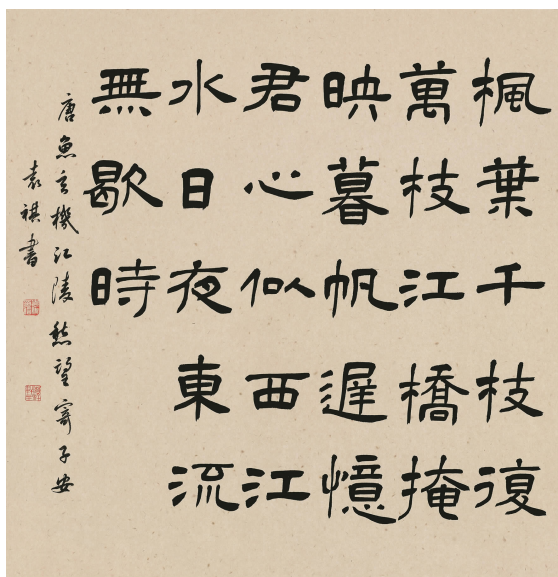 楓葉千枝復
萬枝江橋掩
映暮帆遲憶
君心似西江
水日夜東流
無歇時
唐魚玄機江陵愁望寄子安
袁祺書